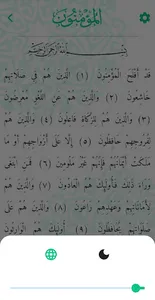 المؤمنون
بِسْمِ اللَّهِ الرَّحْمَٰنِ الرَّحِيمِ
قَدْ أَفْلَحَ الْمُؤْمِنُونَ (1) الَّذِينَ هُمْ فِي صَلَاتِهِمْ
خَاشِعُونَ (2) وَالَّذِينَ هُمْ عَنِ اللَّغْوِ مُعْرِضُونَ
(3) وَالَّذِينَ هُمْ لِلزَّكَاةِ فَاعِلُونَ (4) وَالَّذِينَ هُمْ
لِفُرُوجِهِمْ حَافِظُونَ (5) إِلَّا عَلَى أَزْوَاجِهِمْ أَوْ مَا
مَلَكَتْ أَيْمَانُهُمْ فَإِنَّهُمْ غَيْرُ مَلُومِينَ (6) فَمَنِ ابْتَغَى
وَرَاءَ ذَلِكَ فَأُولَئِكَ هُمُ الْعَادُونَ (7) وَالَّذِينَ هُمْ
لِأَمَانَاتِهِمْ وَعَهْدِهِمْ رَاعُونَ (8) وَالَّذِينَ هُمْ عَلَى
صَلَوَاتِهِمْ يُحَافِظُونَ (9) أُولَئِكَ هُمُ الْوَارِثُونَ